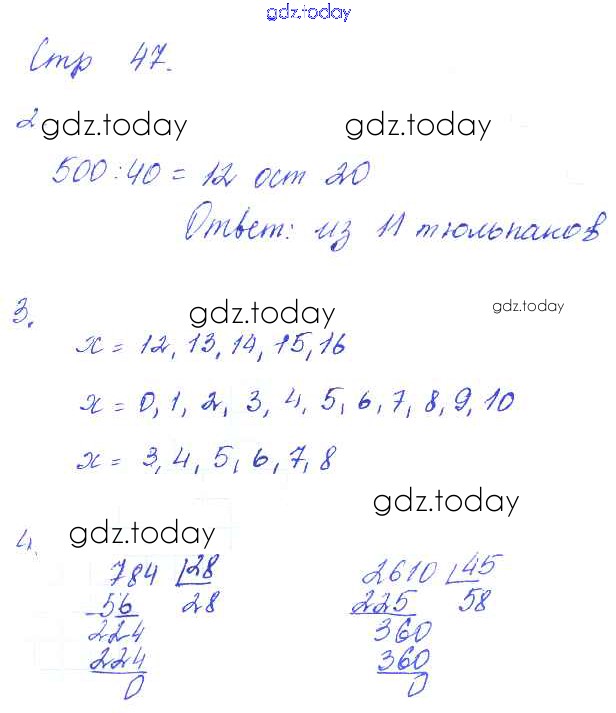 gdz.today
Стр 47.
2 gdz.today gdz.today
500:40 = 12 ост 20
Ответ: из 11 тюльпанов
3. gdz.today gdz.today
x = 12, 13, 14, 15, 16
x = 0, 1, 2, 3, 4, 5, 6, 7, 8, 9, 10
x = 3, 4, 5, 6, 7, 8
gdz.today
4. gdz.today
784 28 2610 45
56 28 225 58
224 360
224 360
0 0